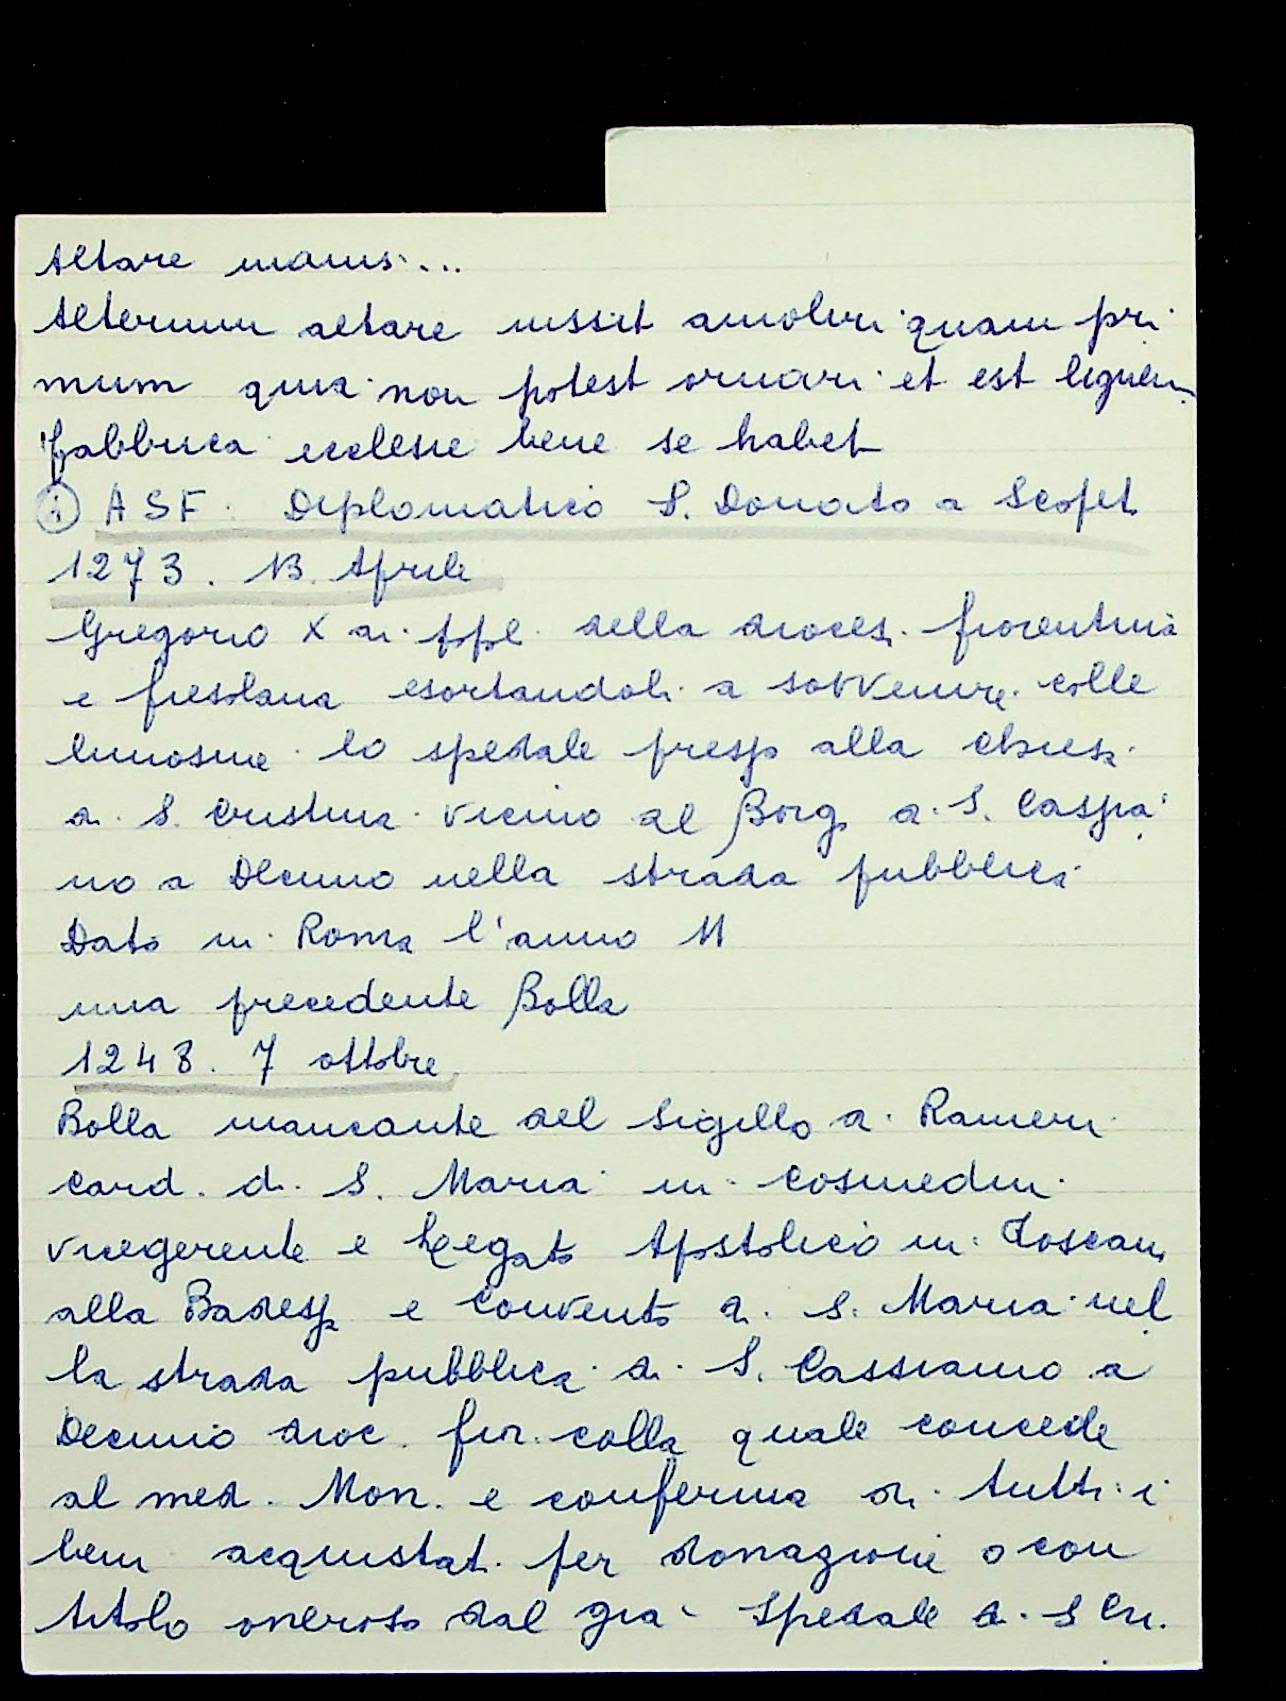 Altare maius...
Alterum altare iussit amoliri quam pri
mum quia non potest ornari et est ligneum
fabbrica ecclesie bene se habet
ASF. Diplomatico S. Donato a Scopet.
1273. 13. Aprile
Gregorio X ai ppl. della dioces. fiorentina
e fiesolana esortandoli a sovvenire colle
limosine lo spedale presso alla chiesa
di S. Cristina vicino al Borgo a S. Caspia
no a Decimo nella strada pubblica
Dato in Roma l'anno II
una precedente Bolla
1248. 7 ottobre
Bolla mancante del sigillo di Ranieri
card. di S. Maria in Cosmedin
vicegerente e Legato Apostolico in Toscana
alla Badessa e Convento di S. Maria nel
la strada pubblica di S. Cassiano a
Decimo dioc. fior. colla quale concede
al med. Mon. e conferma di tutti i
beni acquistati per donazione o con
titolo oneroso dal già spedale di S Cri.